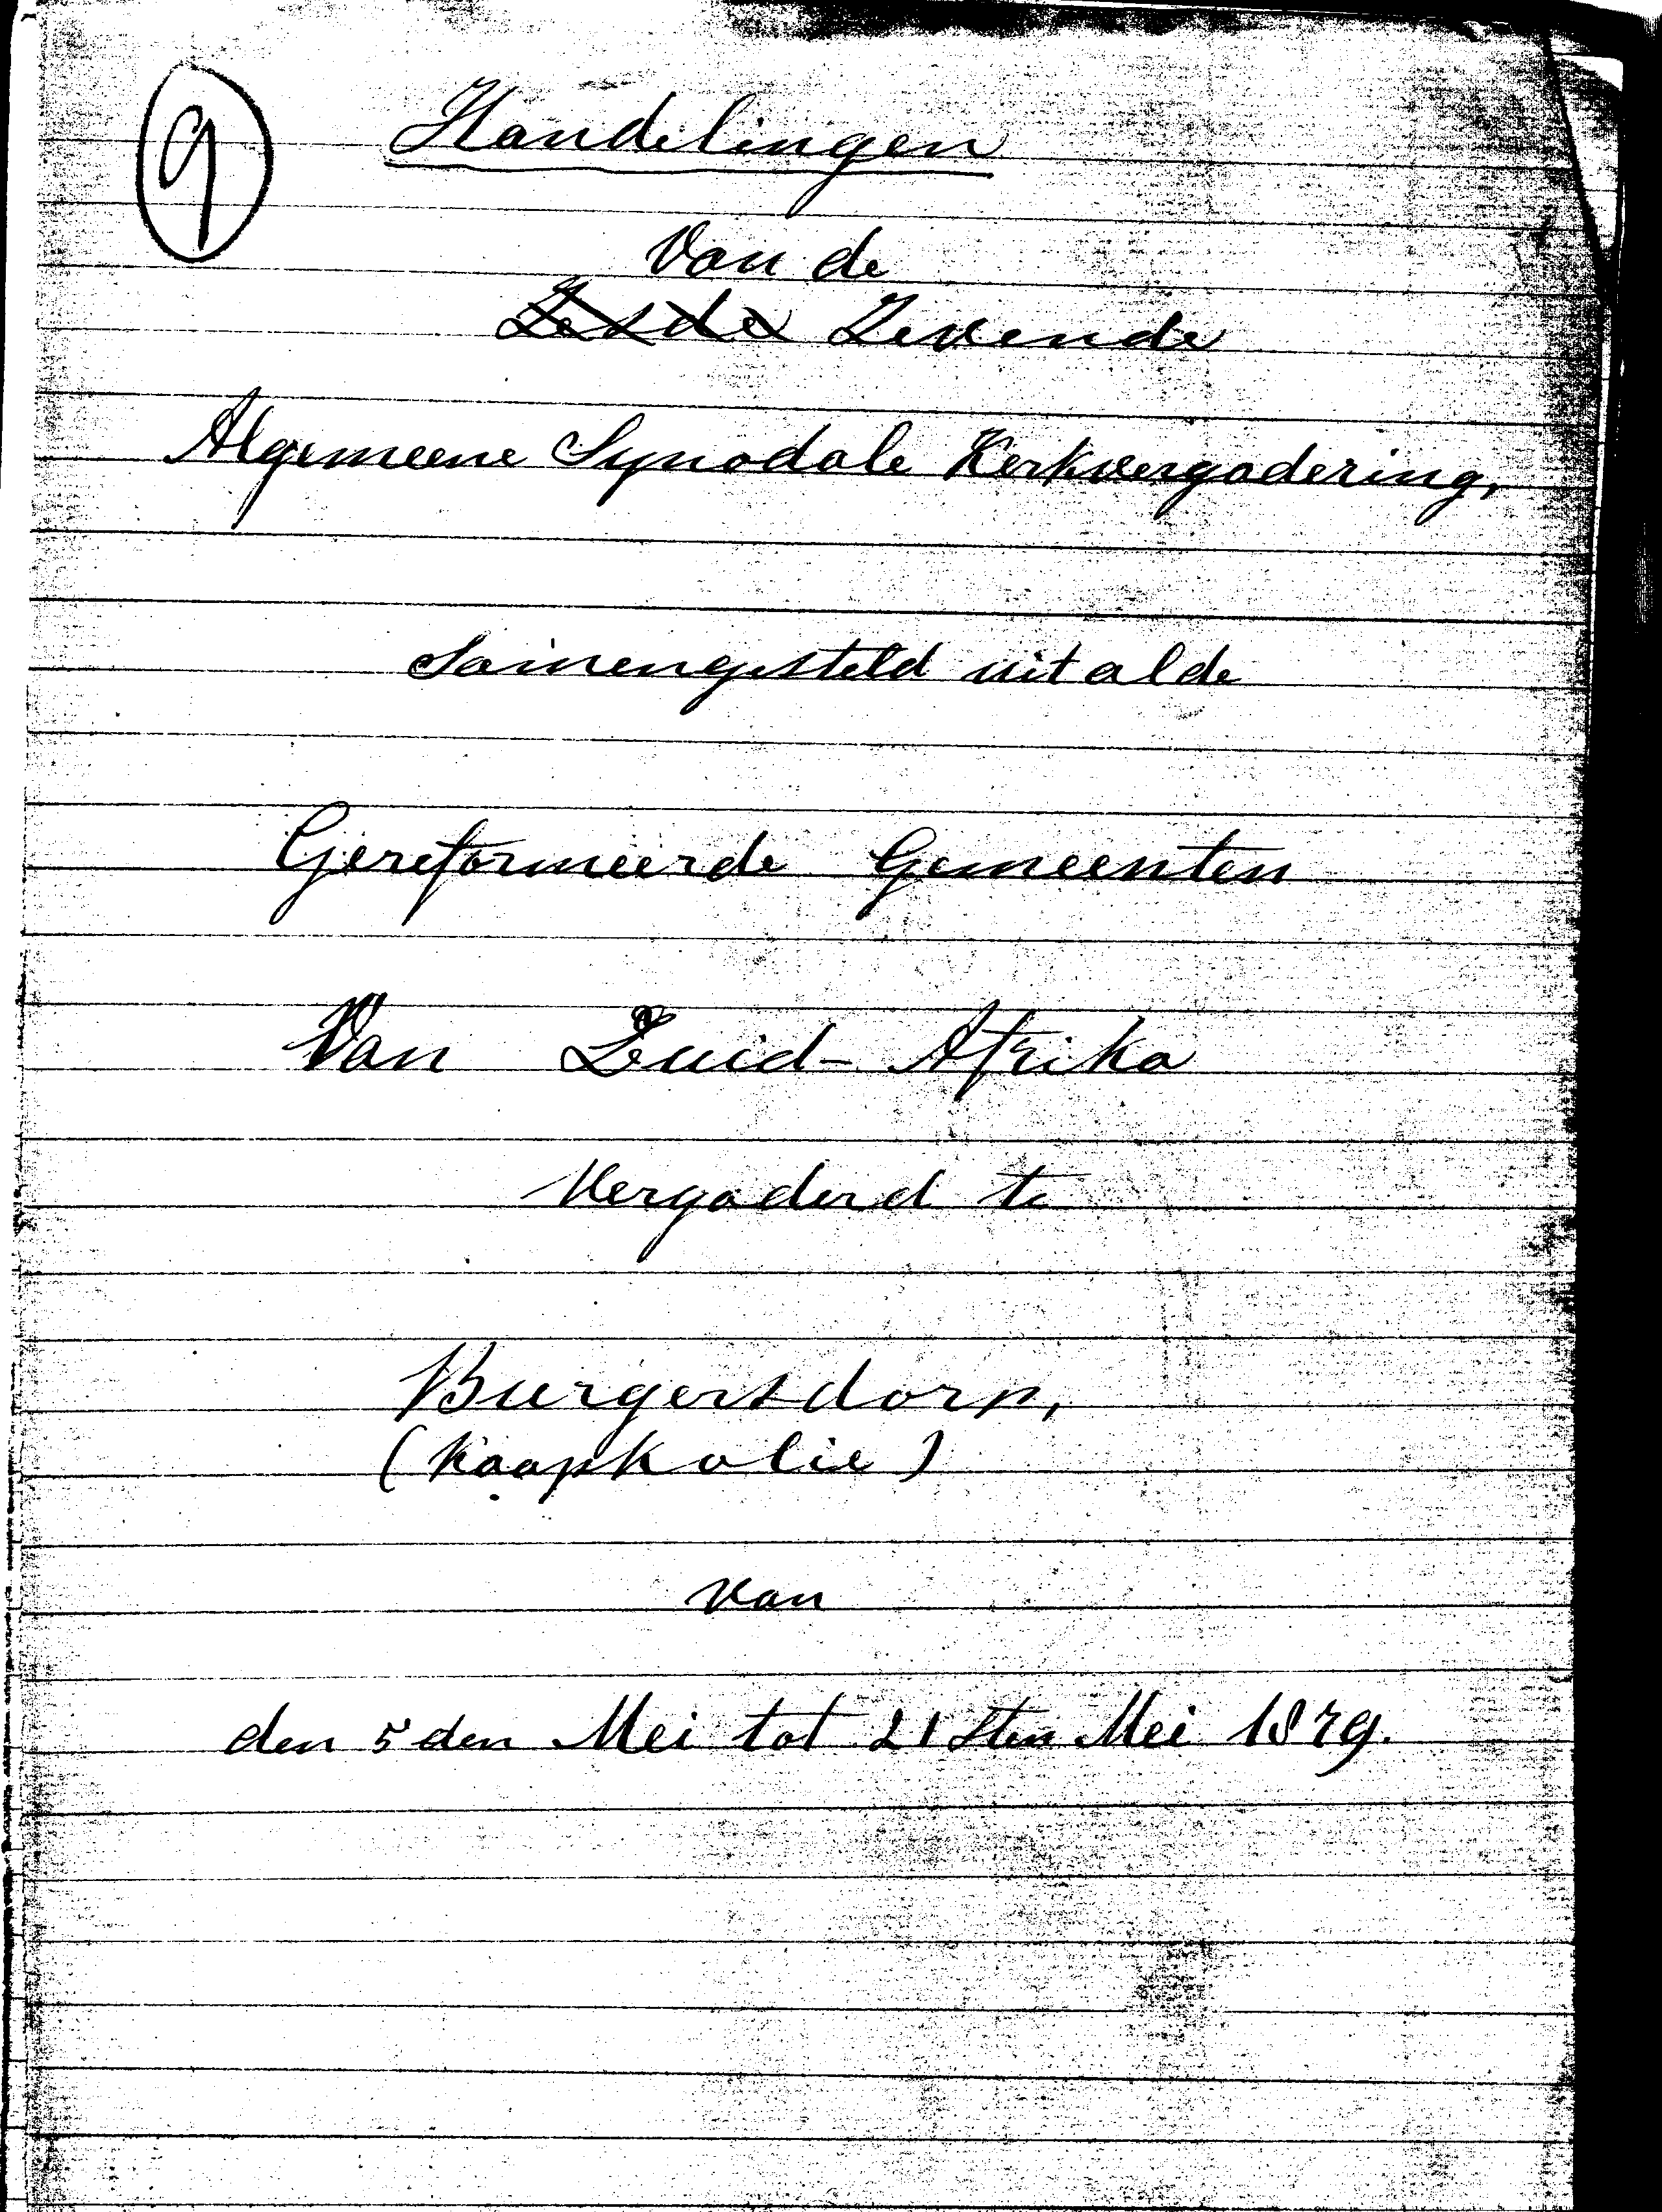 9
Handelingen
Van de
Zesde Zevende
Algemeene Synodale Kerkvergadering,
Samengesteld uit al de
Gereformeerde Gemeenten
Van Zuid-Afrika
Vergaderd te
Burgersdorp,
(Kaapkolie)
van
den 5 den Mei tot 21sten Mei 1879.